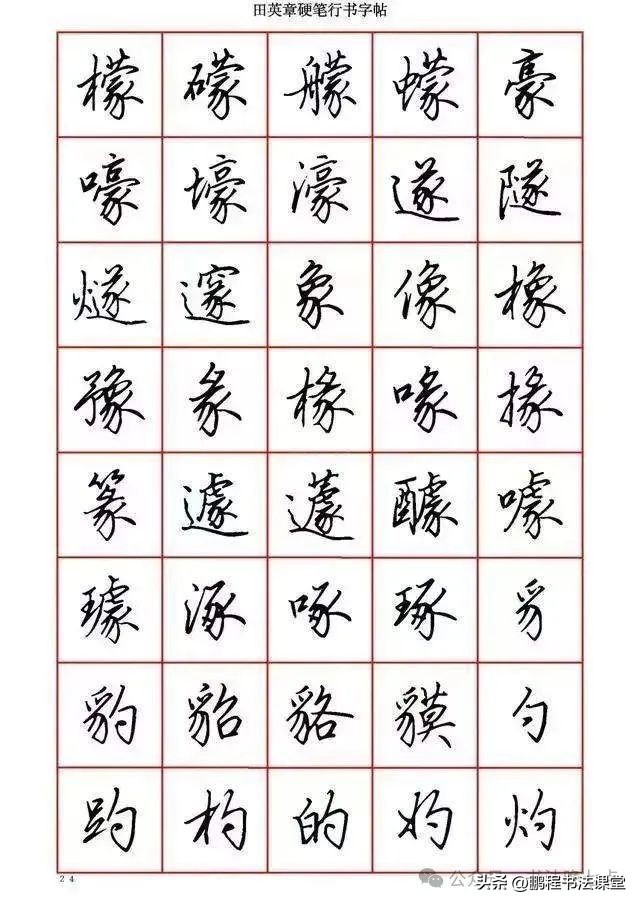 田英章硬笔行书字帖
檬 礞 艨 蠓 豪
嚎 壕 濠 遂 隧
燧 邃 象 像 橡
豫 彖 椽 喙 掾
篆 遽 蘧 醵 噱
璩 涿 啄 琢 豸
豹 貂 貉 貘 勺
趵 杓 的 妁 灼
24
头条 @鹏程书法课堂